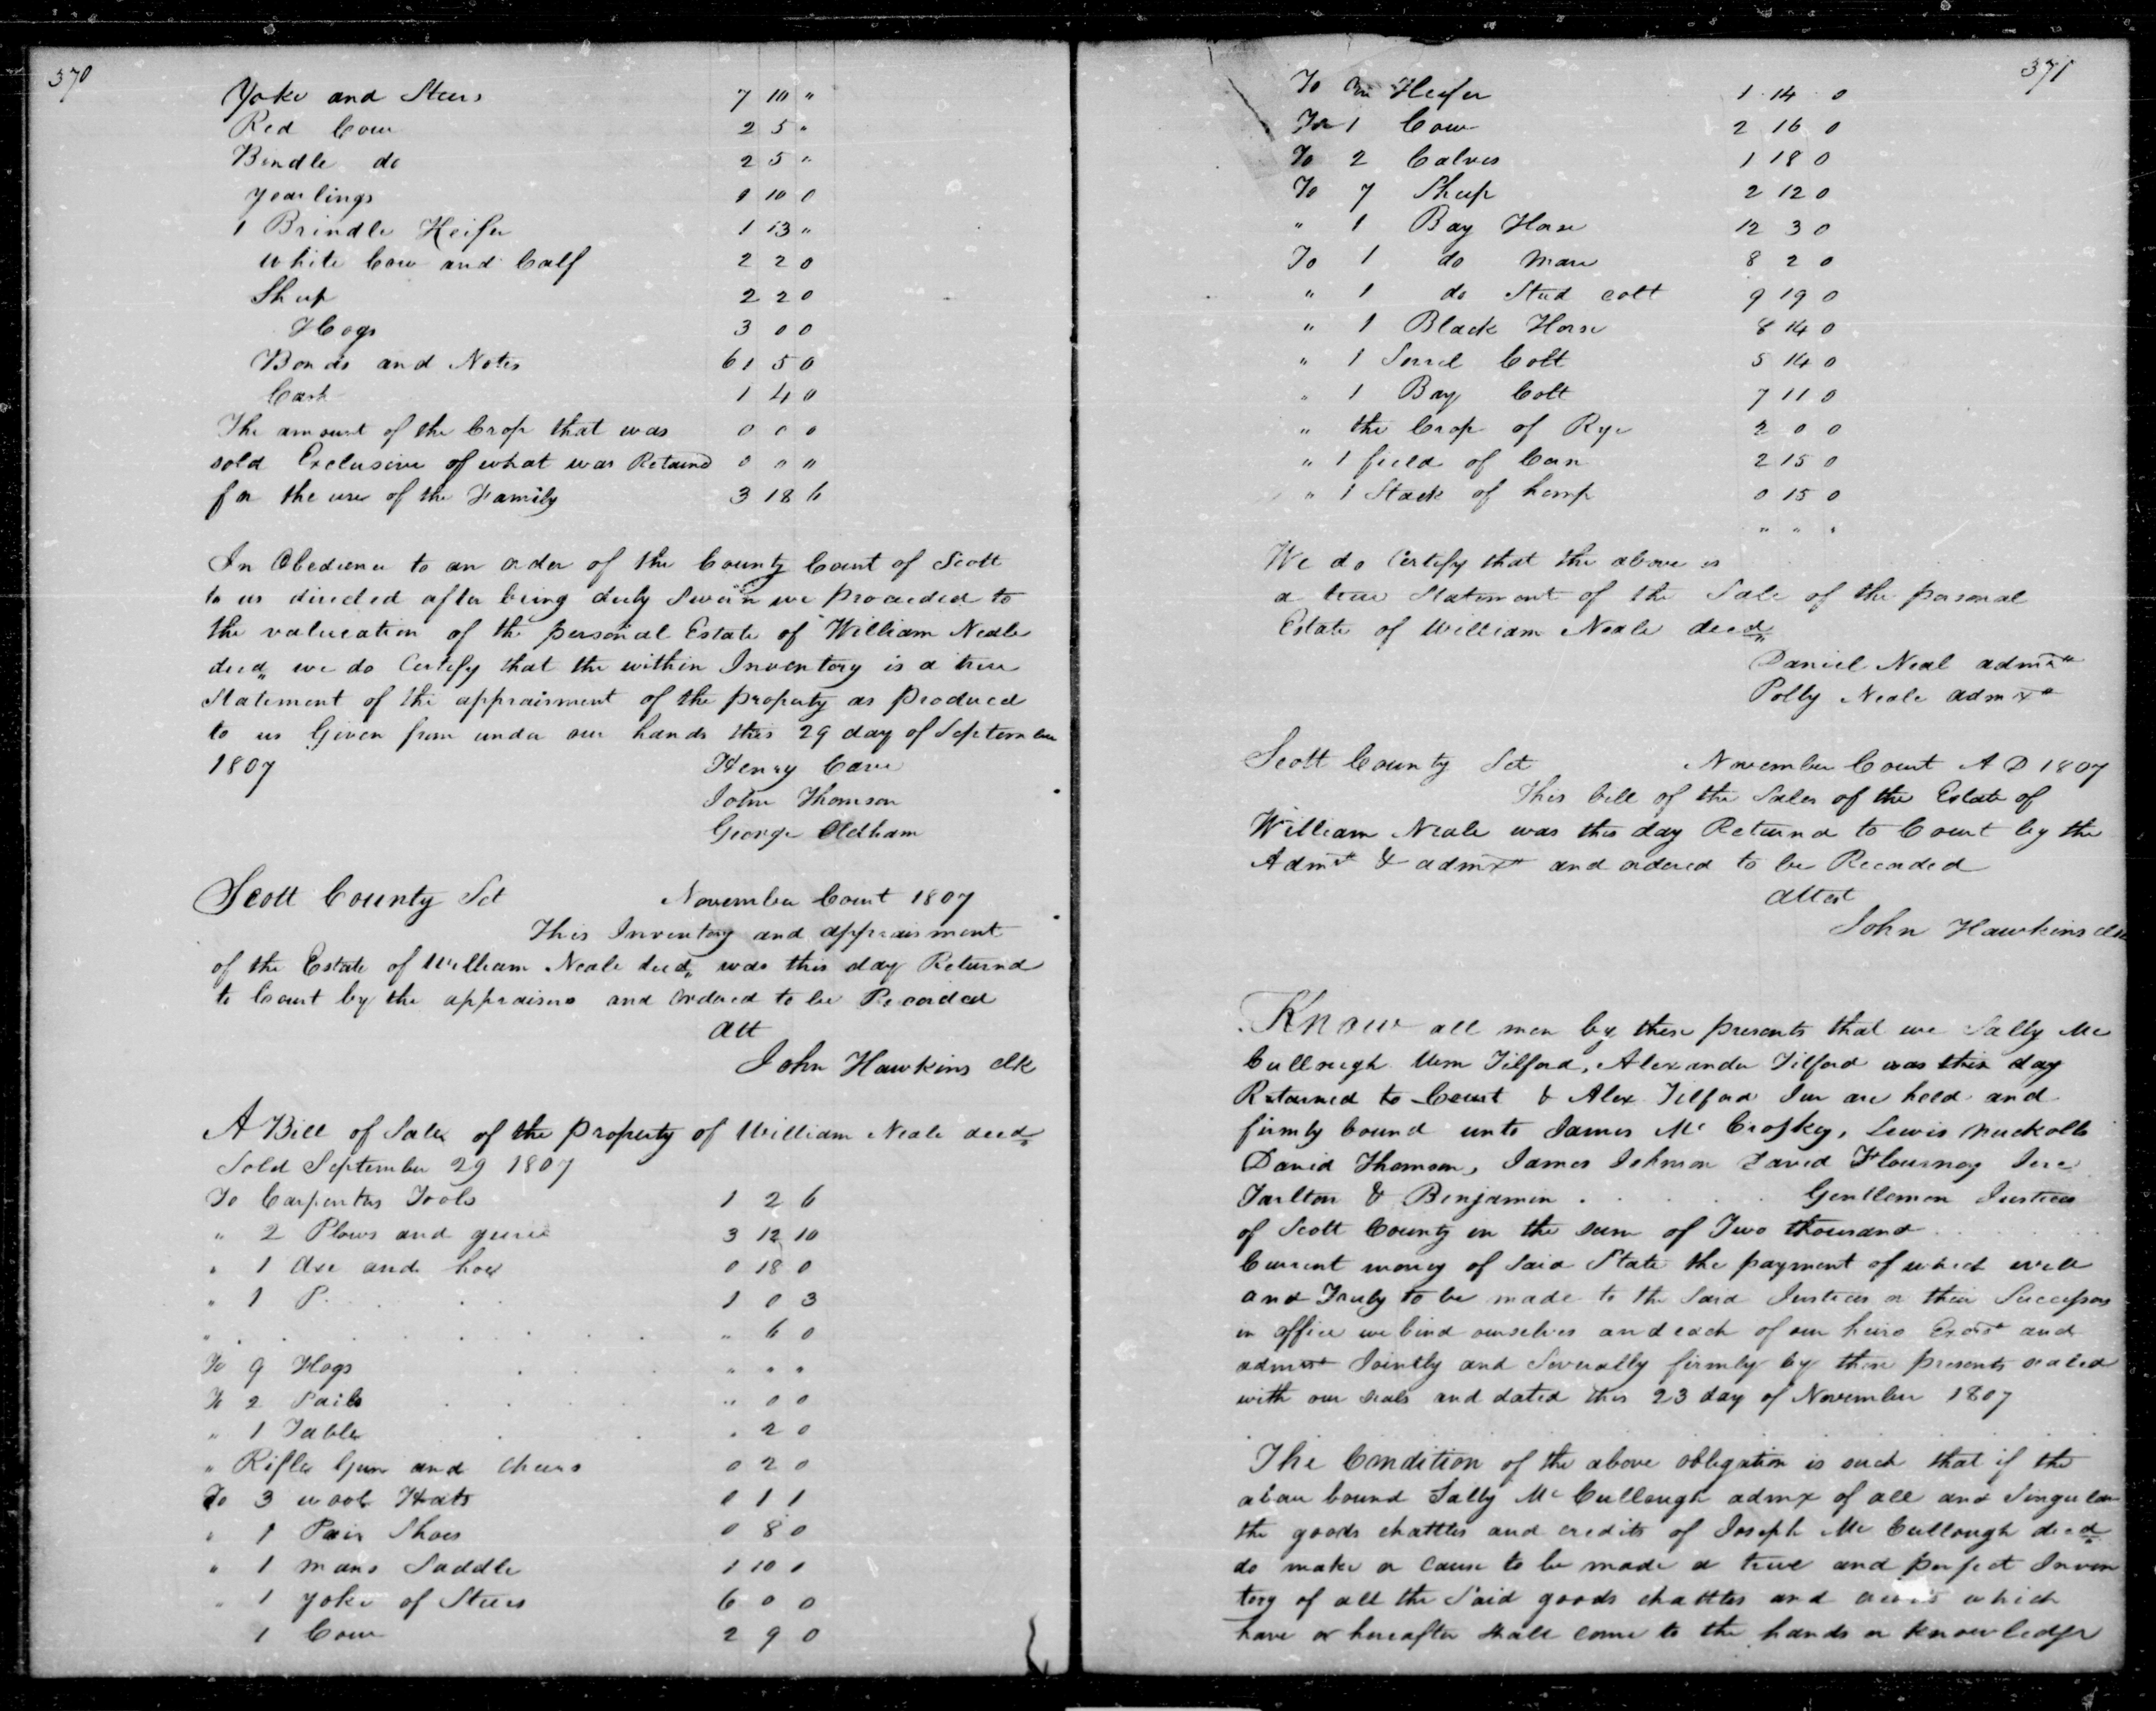 370
Yoke and Steers 7 10 "
Red Cow 2 5 "
Bindle do 2 5 "
yearlings 9 10 0
1 Brindle Heifer 1 13 "
white Cow and Calf 2 2 0
Sheep 2 2 0
Hogs 3 0 0
Bonds and Notes 61 5 0
Cash 1 4 0
The amount of the Crop that was 0 0 0
sold Exclusive of what was Retaind 0 " "
for the use of the Family 3 18 6
In Obedience to an order of the County Court of Scott
to us directed after being duly Sworn we proceeded to
the valueation of the personal Estate of William Neale
decd, we do Certify that the within Inventory is a true
Statement of the appraisment of the property as produced
to us Given from under our hands this 29 day of September
1807 Henry Cave
John Thomson
George Oldham
Scott County Sct November Court 1807
This Inventory and appraisment
of the Estate of William Neale decd, was this day Returnd
to Court by the appraisers and ordered to be Recorded
Att
John Hawkins clk
A Bill of Sale of the property of William Neale decd
Sold September 29 1807
To Carpenters Tools 1 2 6
" 2 Plows and 3 12 10
" 1 Axe and hoe 0 18 0
" 1 P. . . . 1 0 3
" . . . . . . . " 6 0
To 9 Hogs . . . " " "
To 2 Pails . . . . " 0 0
" 1 Table . . . " 2 0
" Rifle Gun and 0 2 0
To 3 wool Hats 0 1 1
" 1 Pair Shoes 0 8 0
" 1 mans Saddle 1 10 1
" 1 yoke of Steers 6 0 0
1 Cow 2 9 0
371
To One Heifer 1 14 0
To 1 Cow 2 16 0
To 2 Calves 1 18 0
To 7 Sheep 2 12 0
" 1 Bay Horse 12 3 0
To 1 do Mare 8 2 0
" 1 do Stud colt 9 19 0
" 1 Black Horse 8 14 0
" 1 Sorrel Colt 5 14 0
" 1 Bay Colt 7 11 0
" the Crop of Rye 2 0 0
" 1 field of Corn 2 15 0
" 1 Stack of hemp 0 15 0
" " "
We do Certify that the above is
a true Statement of the Sale of the personal
Estate of William Neale decd
Daniel Neal admr
Polly Neale admx
Scott County Sct November Court A D 1807
This bill of the Sales of the Estate of
William Neale was this day Returnd to Court by the
Admr & admx and ordered to be Recorded
Attest
John Hawkins clk
Know all men by these presents that we Sally Mc
Cullough Wm Tilford, Alexander Tilford was this day
Returned to Court & Alex Tilford Jur are held and
firmly bound unto James Mc Croskey, Lewis Nuckolls
David Thomson, James Johnson David Flournoy Jere
Tarlton & Benjamin . . . . . . Gentlemen Justices
of Scott County in the sum of Two thousand . . . . .
Current money of Said State the payment of which well
and Truly to be made to the Said Justices or their Successors
in office we bind ourselves and each of our heirs Exors and
admrs Jointly and Severally firmly by these presents sealed
with our seals and dated this 23 day of November 1807
The Condition of the above obligation is such that if the
above bound Sally Mc Cullough admx of all and Singular
the goods chattles and credits of Joseph Mc Cullough decd
do make or cause to be made a true and perfect Inven
tory of all the Said goods chattles and which
have or hereafter shall come to the hands or knowledge